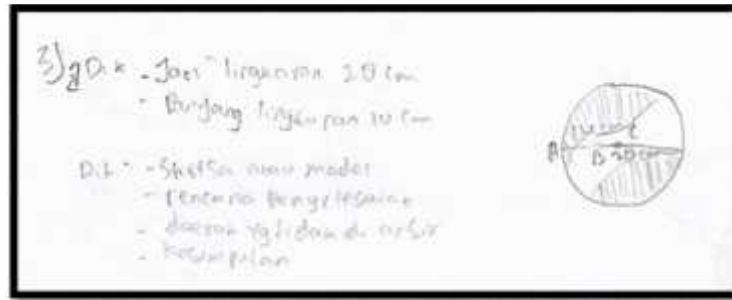 3) a Dik - Jari" lingkaran 20 cm
- Panjang lingkaran 10 cm
Dit - Sketsa atau model
- rencana Penyelesaian
- daerah yg tidak di arsir
- kesimpulan
A B 20 cm